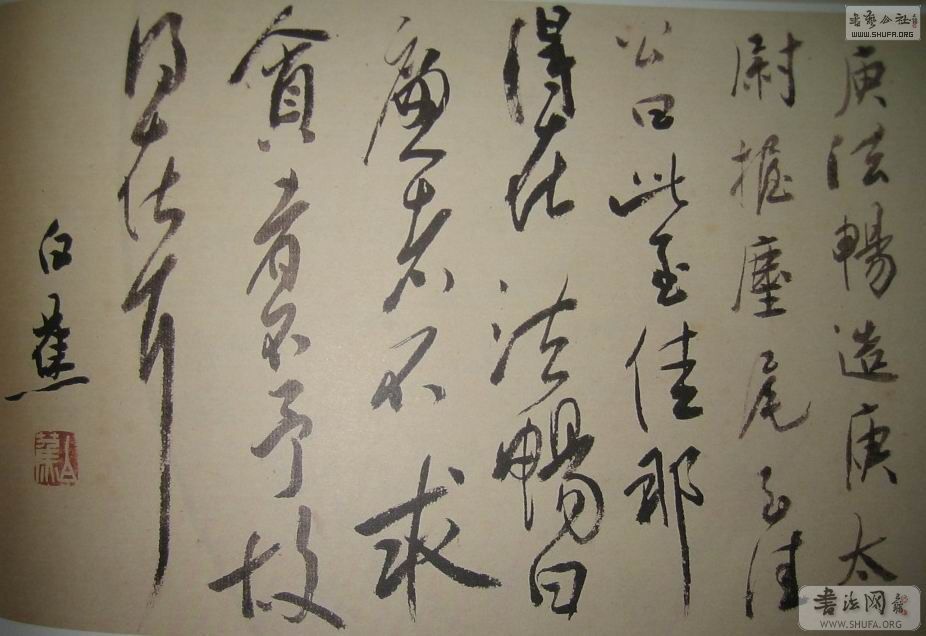 庾法暢造庾太
尉握麈尾至佳
公曰此至佳那
得在法暢曰
廉者不求
貪者不予故
得在耳
白蕉
白蕉
書藝公社
WWW.SHUFA.ORG
书法网
WWW.SHUFA.ORG